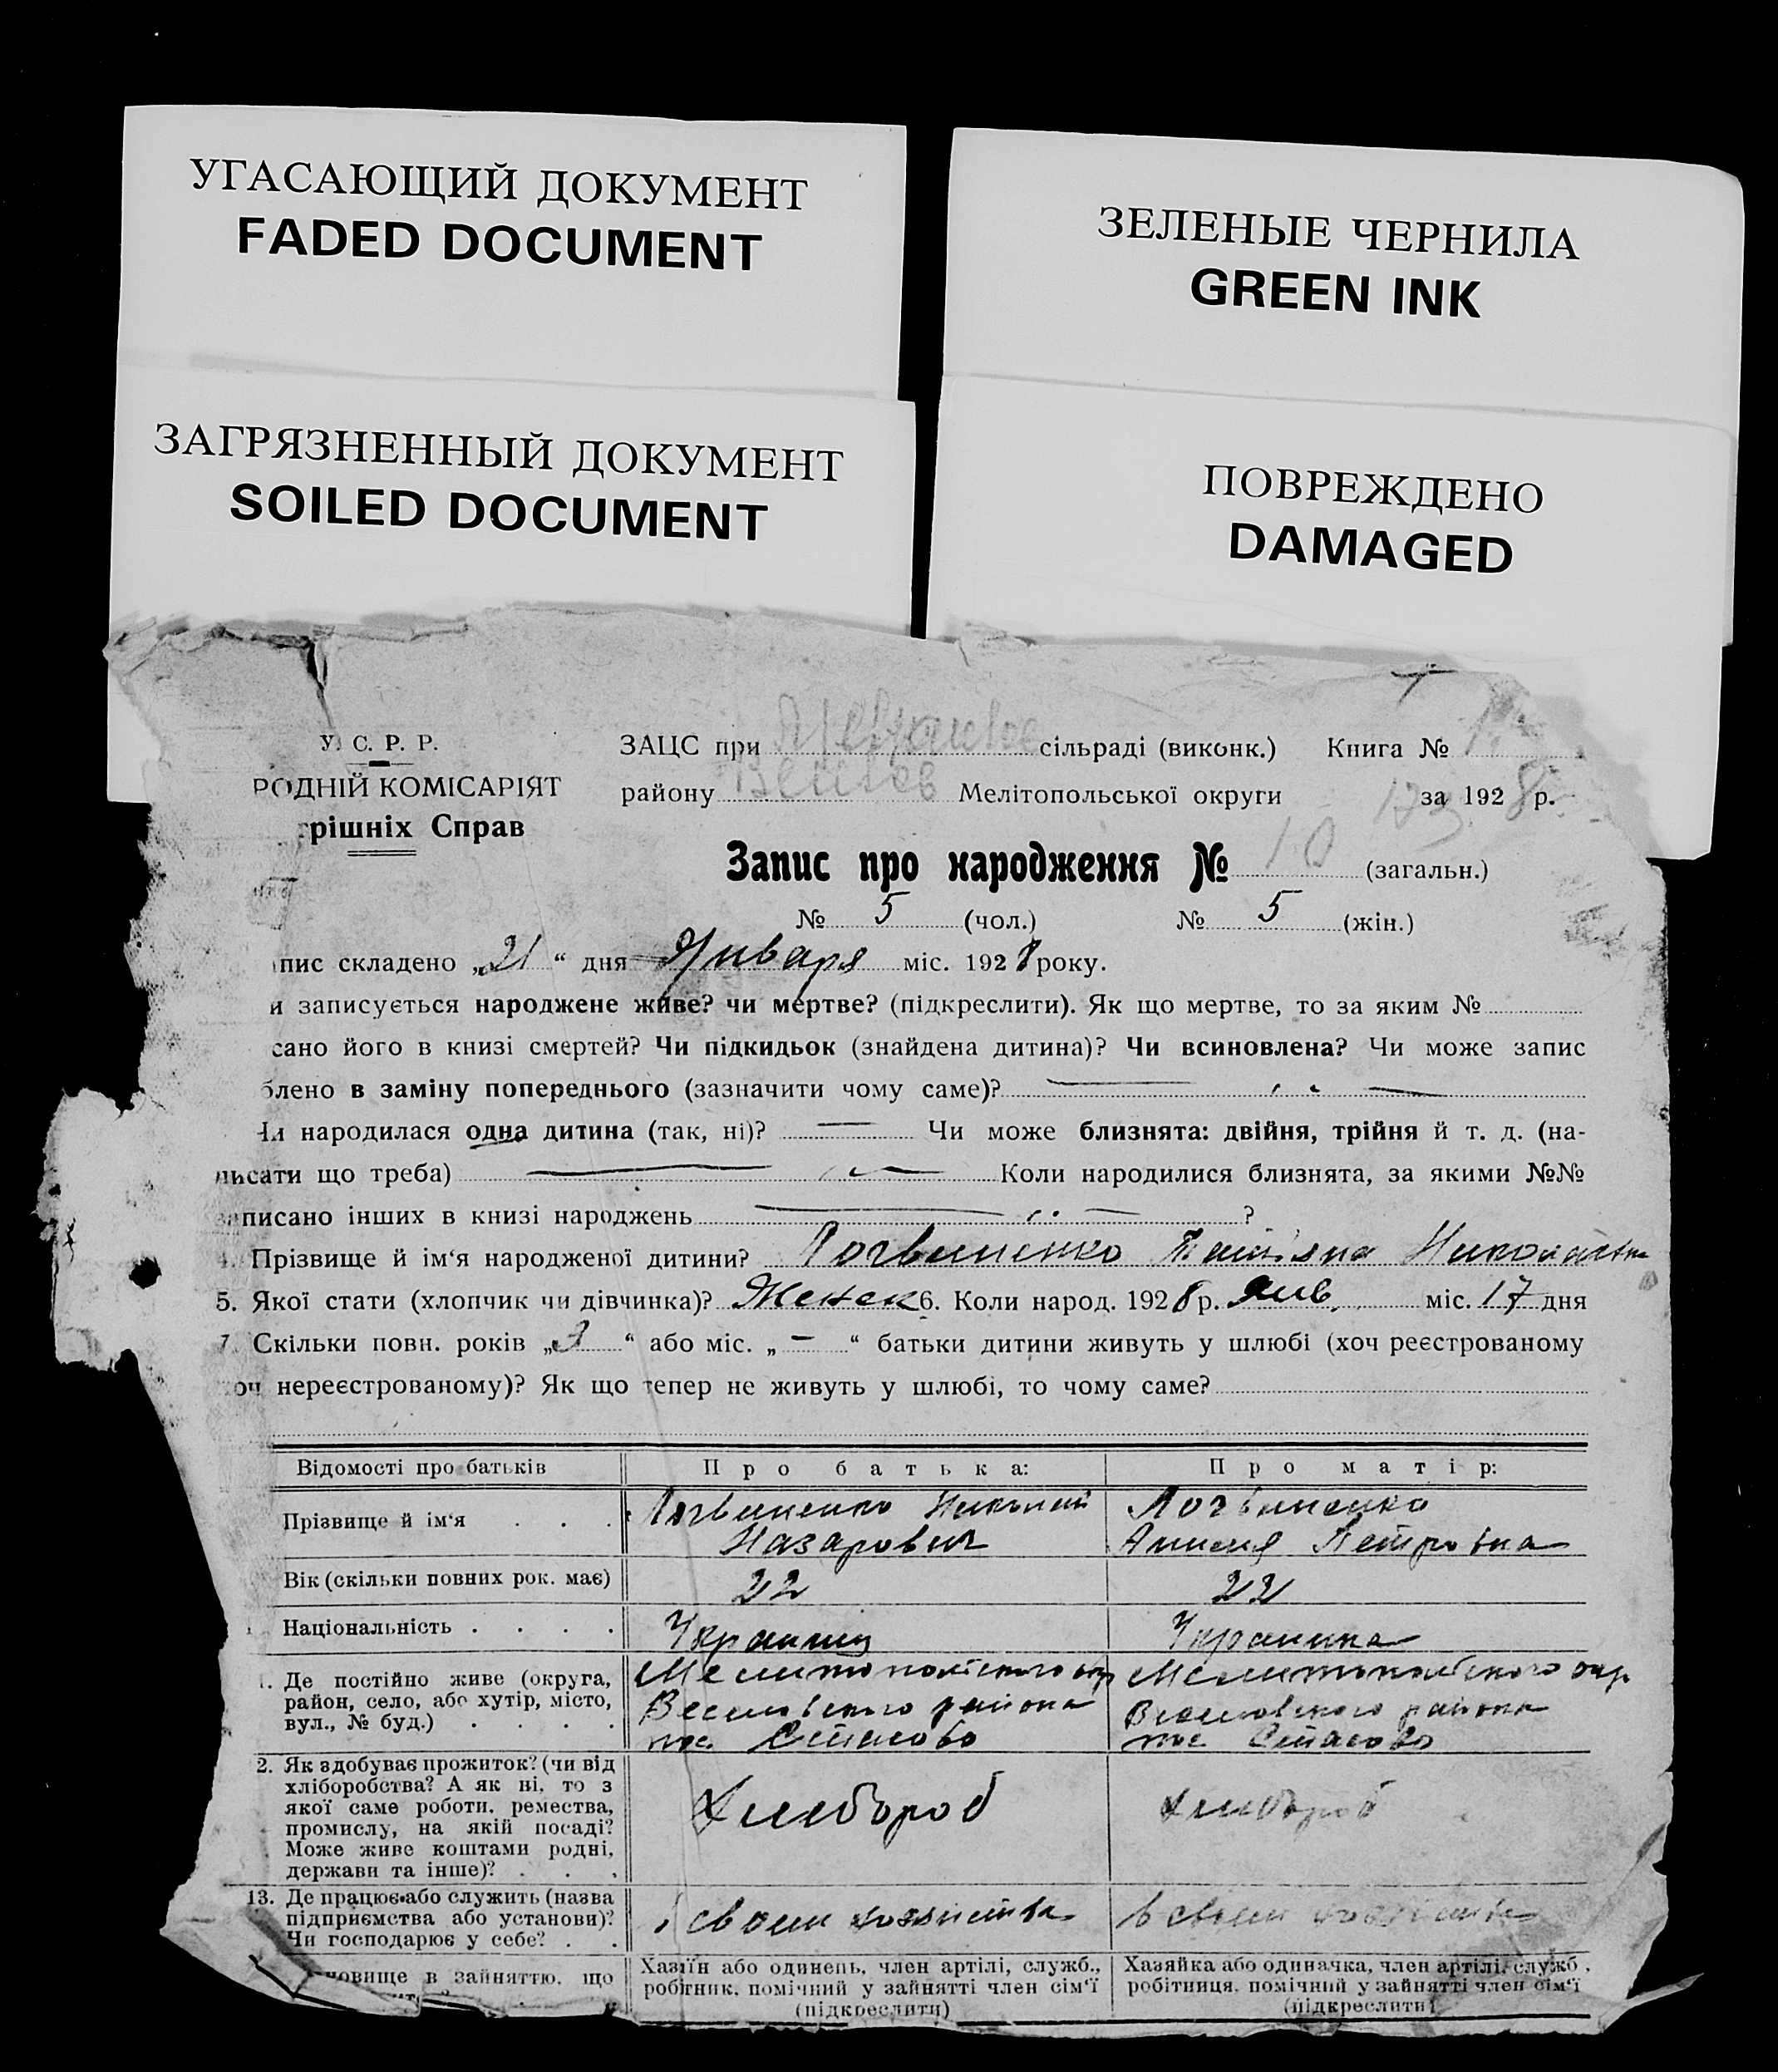 УГАСАЮЩИЙ ДОКУМЕНТ
FADED DOCUMENT
ЗЕЛЕНЫЕ ЧЕРНИЛА
GREEN INK
ЗАГРЯЗНЕННЫЙ ДОКУМЕНТ
SOILED DOCUMENT
ПОВРЕЖДЕНО
DAMAGED
У. С. Р. Р.
РОДНІЙ КОМІСАРІЯТ
рішніх Справ
ЗАЦС при сільраді (виконк.) Книга №
району Мелітопольської округи за 1928 р.
Запис про народження № 10 (загальн.)
№ 5 (чол.) № 5 (жін.)
пис складено „21“ дня Января міс. 1928 року.
и записується народжене живе? чи мертве? (підкреслити). Як що мертве, то за яким №
сано його в книзі смертей? Чи підкидьок (знайдена дитина)? Чи всиновлена? Чи може запис
блено в заміну попереднього (зазначити чому саме)?
Чи народилася одна дитина (так, ні)? — Чи може близнята: двійня, трійня й т. д. (на-
писати що треба) Коли народилися близнята, за якими №№
записано інших в книзі народжень ?
4. Прізвище й ім‘я народженої дитини? Логвиненко Татіяна Николаевна
5. Якої стати (хлопчик чи дівчинка)? Женск 6. Коли народ. 1928 р. Янв. міс. 17 дня
7. Скільки повн. років „3“ або міс. „—“ батьки дитини живуть у шлюбі (хоч реєстрованому
хоч нереєстрованому)? Як що тепер не живуть у шлюбі, то чому саме?
Відомості про батьків
Про батька:
Про матір:
Прізвище й ім‘я . . .
Логвиненко Николай
Назарович
Логвиненко
Анисия Петровна
Вік (скільки повних рок. має)
22
22
Національність . . . .
Украинец
Украинка
1. Де постійно живе (округа,
район, село, або хутір, місто,
вул., № буд.) . . . .
Мелитопольского окр
Веселовского района
пос. Стасово
Мелитопольского окр.
Веселовского района
пос Стасово
2. Як здобуває прожиток? (чи від
хліборобства? А як ні, то з
якої саме роботи, ремества,
промислу, на якій посаді?
Може живе коштами родні,
держави та інше)? . . .
Хлебороб
Хлебороб
13. Де працює або служить (назва
підприємства або установи)?
Чи господарює у себе? . .
в своем хозяйстве
в своем хозяйстве
новище в зайняттю, що
Хазяїн або одинець, член артілі, служб.,
робітник, помічний у зайнятті член сім‘ї
(підкреслити)
Хазяйка або одиначка, член артілі, служб.,
робітниця, помічний у зайнятті член сім‘ї
(підкреслити)